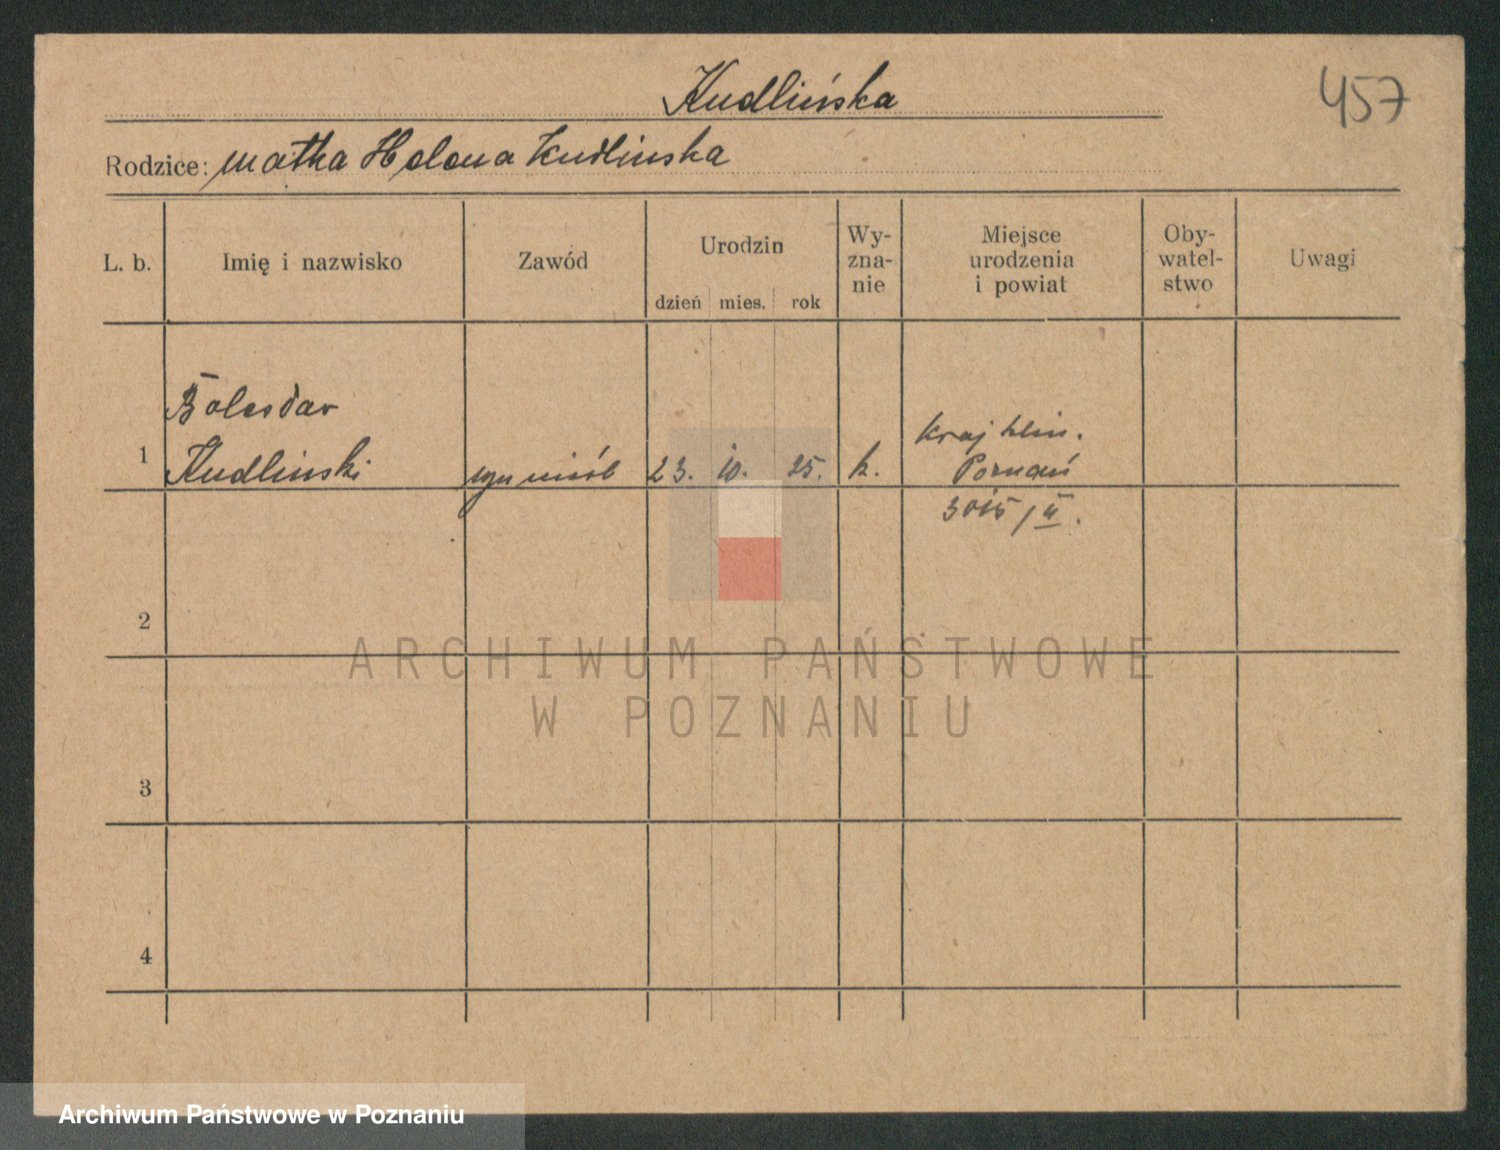 Kudlińska
457
Rodzice: matka Helena Kudlinska
L. b.
Imię i nazwisko
Zawód
Urodzin
dzień mies. rok
Wy-
zna-
nie
Miejsce
urodzenia
i powiat
Oby-
watel-
stwo
Uwagi
Bolesław
1 Kudlinski syn nieśl 23. 10. 25. k.
Kraj. klin.
Poznań
3015/II.
2
3
4
ARCHIWUM PAŃSTWOWE
W POZNANIU
Archiwum Państwowe w Poznaniu